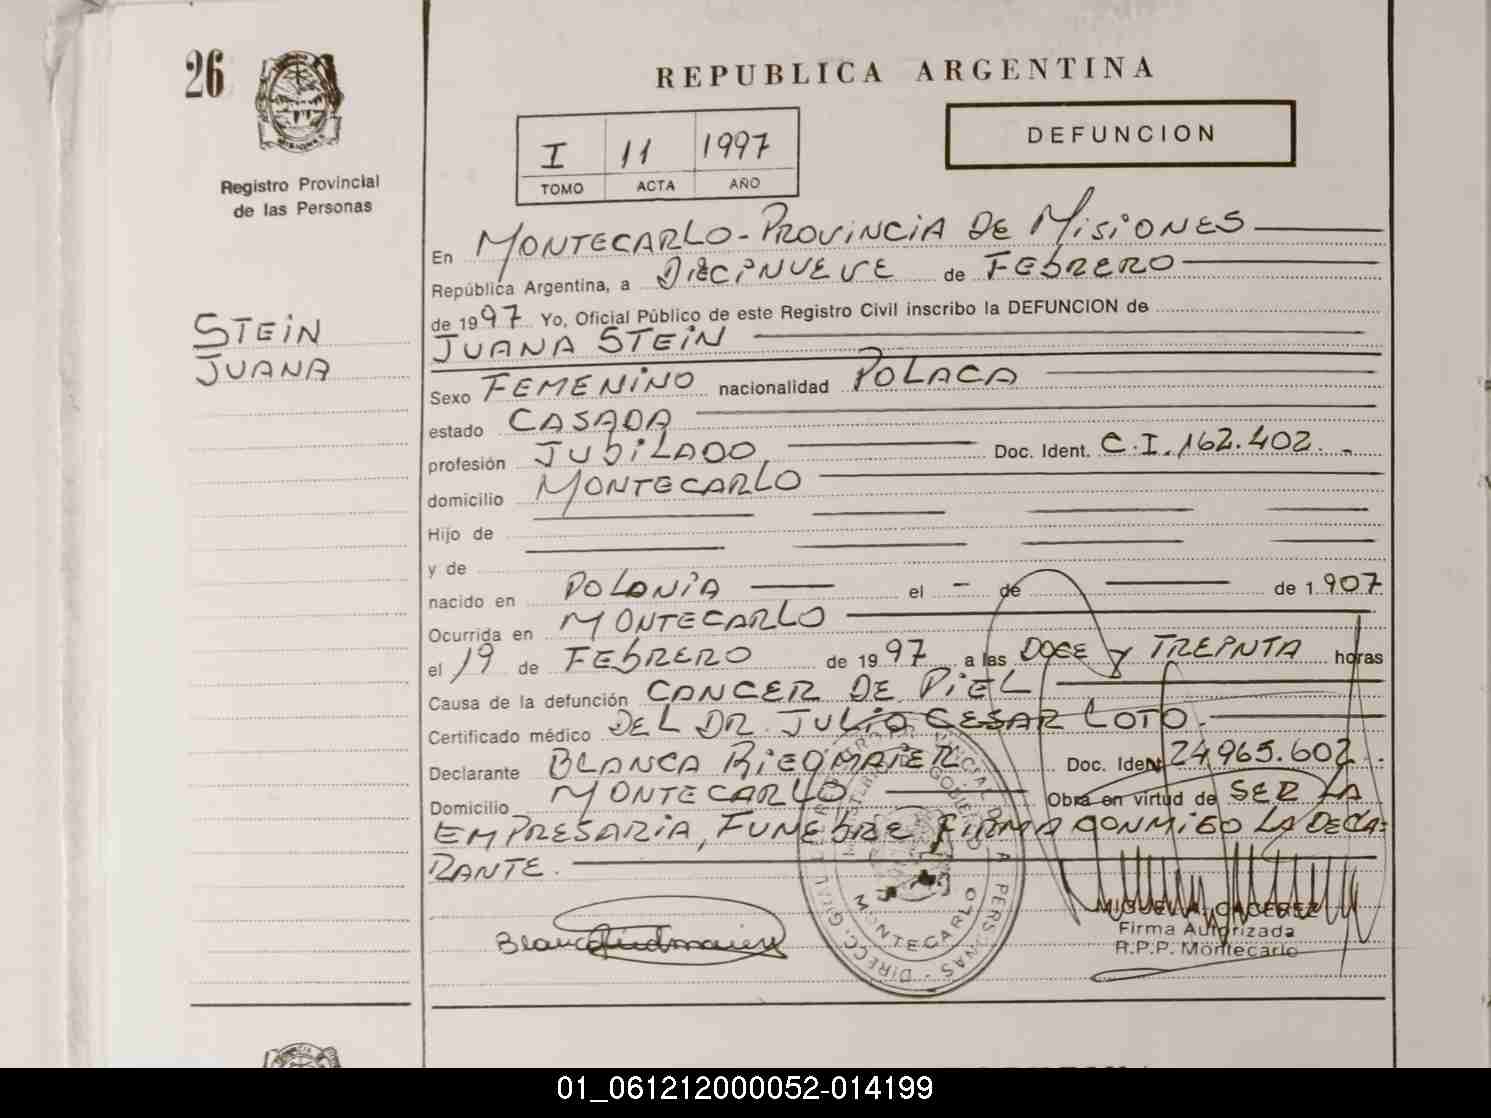 26
REPUBLICA ARGENTINA
I 11 1997
TOMO ACTA AÑO
DEFUNCION
Registro Provincial
de las Personas
STEIN
JUANA
En MONTECARLO - PROVINCIA DE MISIONES
República Argentina, a DIECINUEVE de FEBRERO
de 1997 Yo, Oficial Público de este Registro Civil inscribo la DEFUNCION de
JUANA STEIN
Sexo FEMENINO nacionalidad POLACA
estado CASADA
profesión JUBILADO Doc. Ident. C.I. 162.402.-
domicilio MONTECARLO
Hijo de
y de
nacido en POLONIA el - de de 1.907
Ocurrida en MONTECARLO
el 19 de FEBRERO de 1997 a las DOCE y TREINTA horas
Causa de la defunción CANCER DE PIEL
Certificado médico DEL DR. JULIO CESAR LOTO.
Declarante BLANCA RIEDMAIER Doc. Ident 24.965.602.
Domicilio MONTECARLO Obra en virtud de SER LA
EMPRESARIA, FUNEBRE FIRMA CONMIGO LA DECLA-
RANTE.
MIGUEL A. CACEREZ
Firma Autorizada
R.P.P. Montecarlo
MONTECARLO
01_061212000052-014199